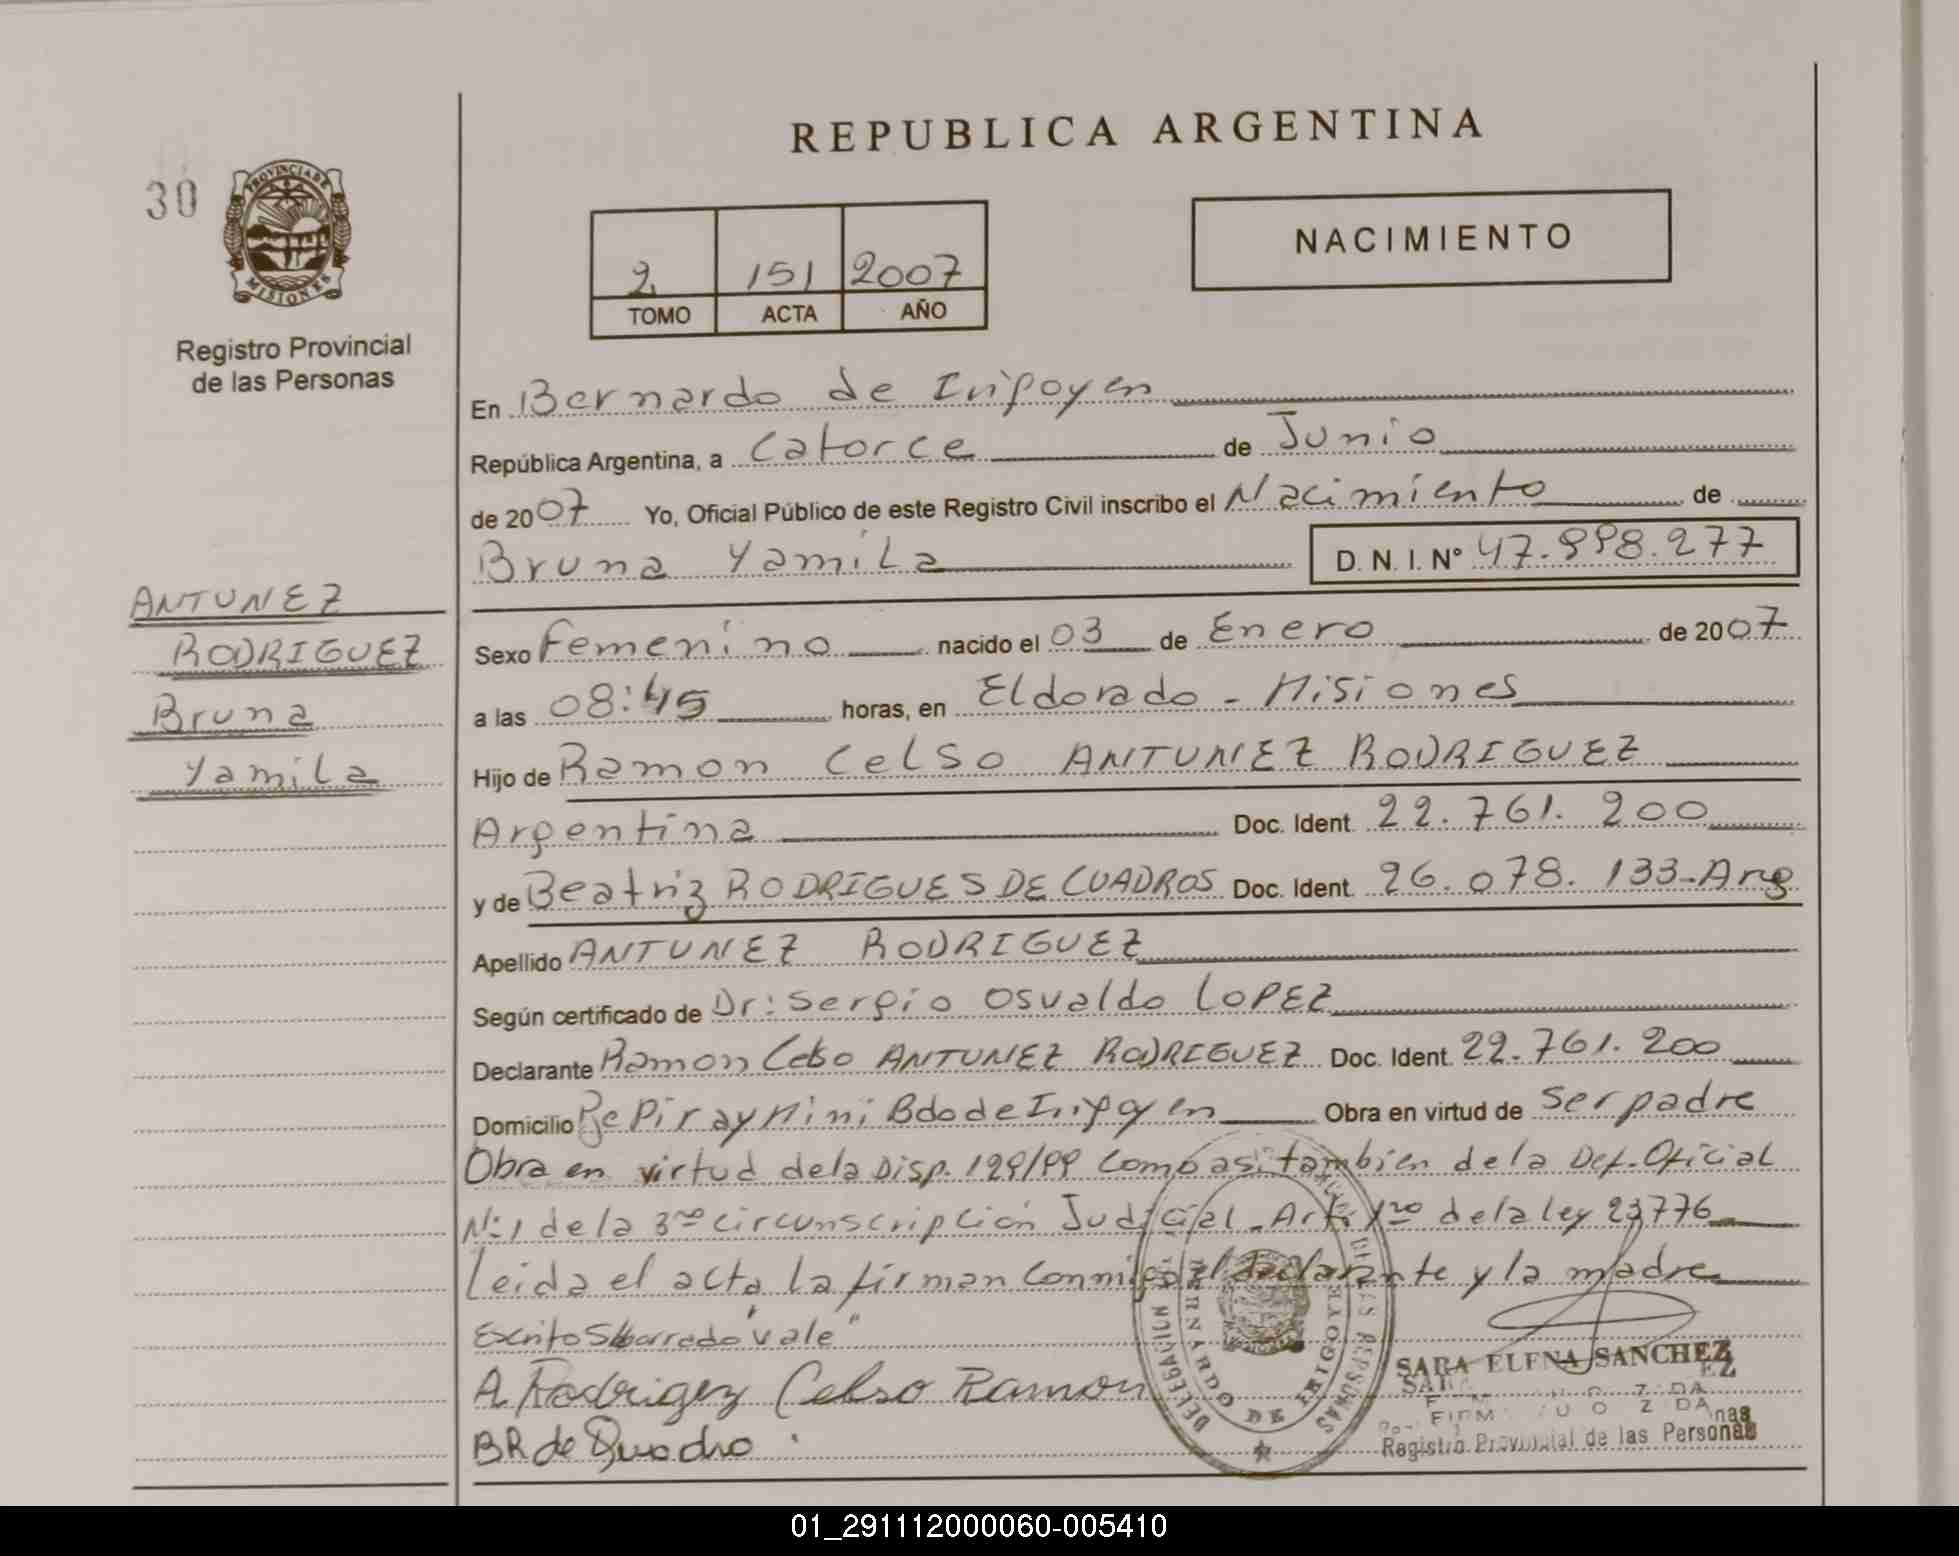 REPUBLICA ARGENTINA
30
PROVINCIA DE
MISIONES
Registro Provincial
de las Personas
2 151 2007
TOMO ACTA AÑO
NACIMIENTO
En Bernardo de Irigoyen
República Argentina, a Catorce de Junio
de 2007 Yo, Oficial Público de este Registro Civil inscribo el Nacimiento de
Bruna Yamila D. N. I. Nº 47.998.277
ANTUNEZ
RODRIGUEZ
Bruna
Yamila
Sexo Femenino nacido el 03 de Enero de 2007
a las 08:45 horas, en Eldorado - Misiones
Hijo de Ramon Celso ANTUNEZ RODRIGUEZ
Argentina Doc. Ident. 22.761.200
y de Beatriz RODRIGUES DE CUADROS Doc. Ident. 26.078.133-Arg
Apellido ANTUNEZ RODRIGUEZ
Según certificado de Dr: Sergio Osvaldo LOPEZ
Declarante Ramon Celso ANTUNEZ RODRIGUEZ Doc. Ident. 22.761.200
Domicilio Pepiray Mini Bdo de Irigoyen Obra en virtud de Ser padre
Obra en virtud de la Disp. 129/99 Como asi tambien de la Def. Oficial
Nº 1 de la 3ra circunscripción Judicial - Art. 1ro de la ley 23776
Leida el acta la firman Conmigo el declarante y la madre
Escrito S/borrado "vale"
A. Rodrigez Celso Ramon
BR de Quadro
DE LAS PERSONAS
DELEGACION
BERNARDO DE IRIGOYEN
SARA ELENA SANCHEZ
Registro Provincial de las Personas
01_291112000060-005410